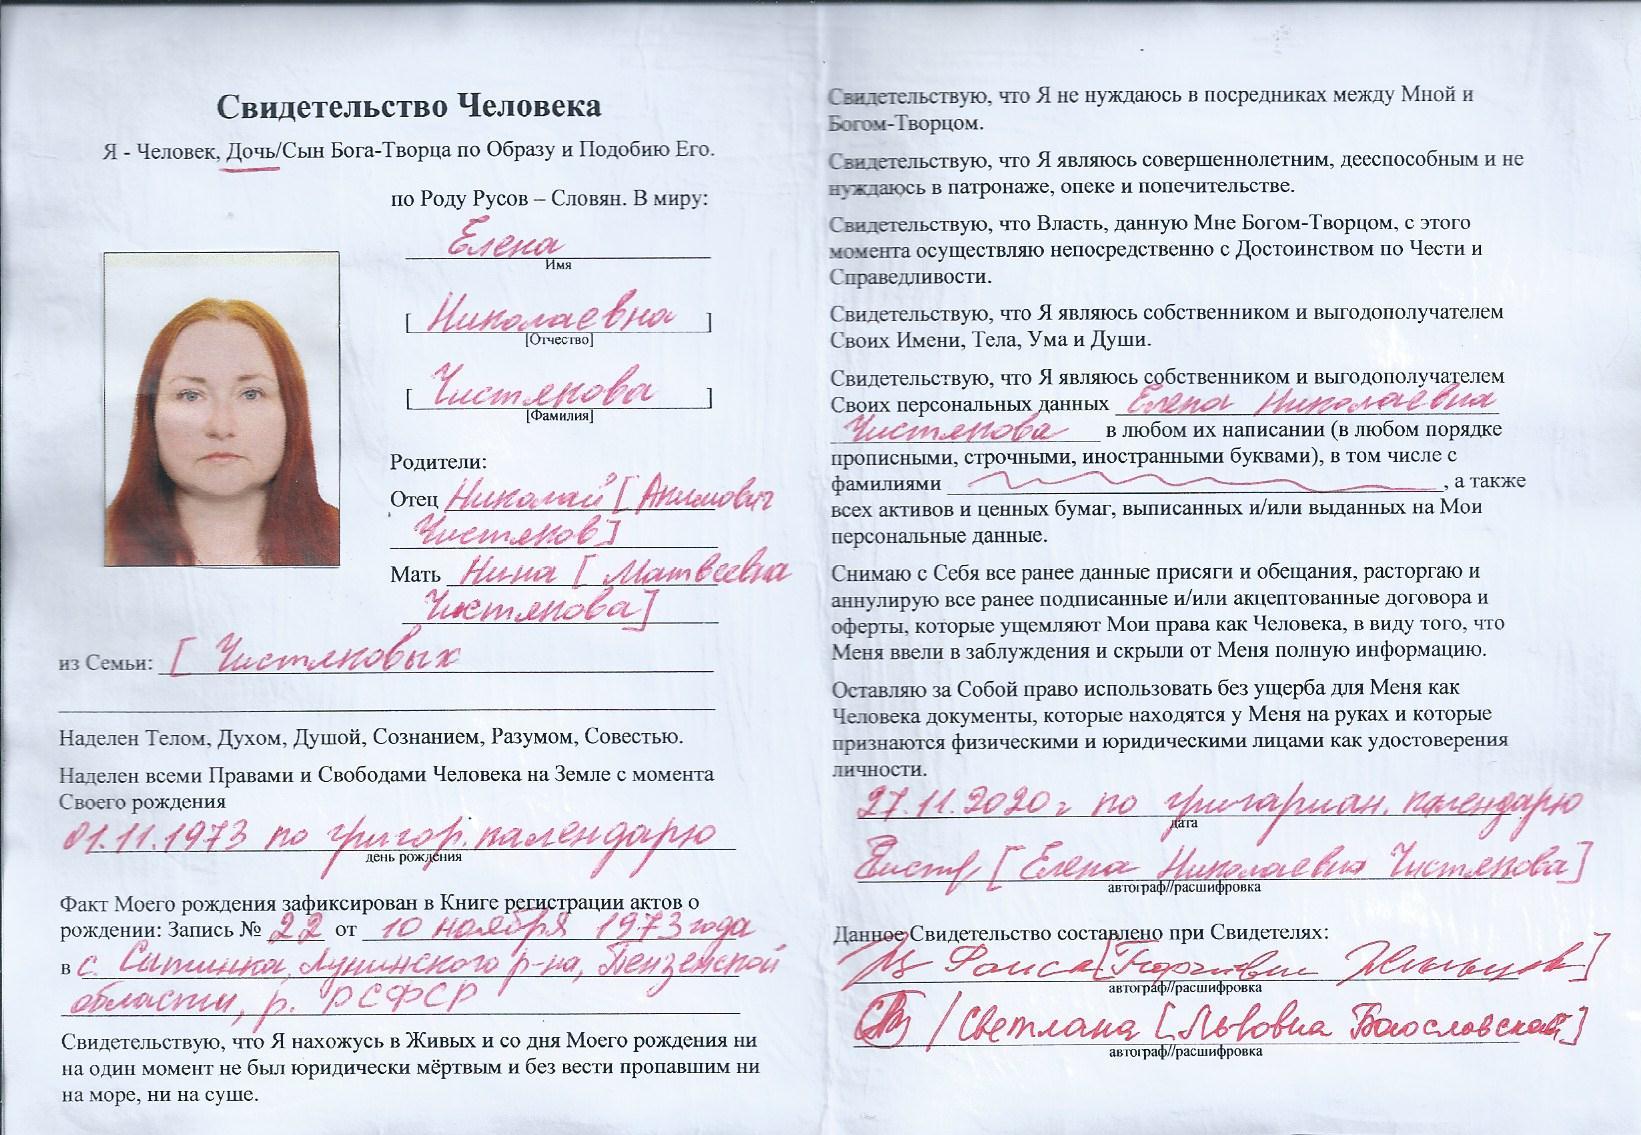 Свидетельство Человека
Я - Человек, Дочь/Сын Бога-Творца по Образу и Подобию Его.
по Роду Русов – Словян. В миру:
Елена
Имя
[ Николаевна ]
[Отчество]
[ Чистякова ]
[Фамилия]
Родители:
Отец Николай [ Акимович
Чистяков]
Мать Нина [ Матвеевна
Чистякова]
из Семьи: [ Чистяковых
Наделен Телом, Духом, Душой, Сознанием, Разумом, Совестью.
Наделен всеми Правами и Свободами Человека на Земле с момента
Своего рождения
01.11.1973 по григор. календарю
день рождения
Факт Моего рождения зафиксирован в Книге регистрации актов о
рождении: Запись № 22 от 10 ноября 1973 года
в с. Ситинка, Лунинского р-на, Пензенской
области, р. РСФСР
Свидетельствую, что Я нахожусь в Живых и со дня Моего рождения ни
на один момент не был юридически мёртвым и без вести пропавшим ни
на море, ни на суше.
Свидетельствую, что Я не нуждаюсь в посредниках между Мной и
Богом-Творцом.
Свидетельствую, что Я являюсь совершеннолетним, дееспособным и не
нуждаюсь в патронаже, опеке и попечительстве.
Свидетельствую, что Власть, данную Мне Богом-Творцом, с этого
момента осуществляю непосредственно с Достоинством по Чести и
Справедливости.
Свидетельствую, что Я являюсь собственником и выгодополучателем
Своих Имени, Тела, Ума и Души.
Свидетельствую, что Я являюсь собственником и выгодополучателем
Своих персональных данных Елена Николаевна
Чистякова в любом их написании (в любом порядке
прописными, строчными, иностранными буквами), в том числе с
фамилиями , а также
всех активов и ценных бумаг, выписанных и/или выданных на Мои
персональные данные.
Снимаю с Себя все ранее данные присяги и обещания, расторгаю и
аннулирую все ранее подписанные и/или акцептованные договора и
оферты, которые ущемляют Мои права как Человека, в виду того, что
Меня ввели в заблуждения и скрыли от Меня полную информацию.
Оставляю за Собой право использовать без ущерба для Меня как
Человека документы, которые находятся у Меня на руках и которые
признаются физическими и юридическими лицами как удостоверения
личности.
27.11.2020 г по григориан. календарю
дата
[Елена Николаевна Чистякова]
автограф//расшифровка
Данное Свидетельство составлено при Свидетелях:
Раиса
автограф//расшифровка
/ Светлана [Львовна Богословская]
автограф//расшифровка